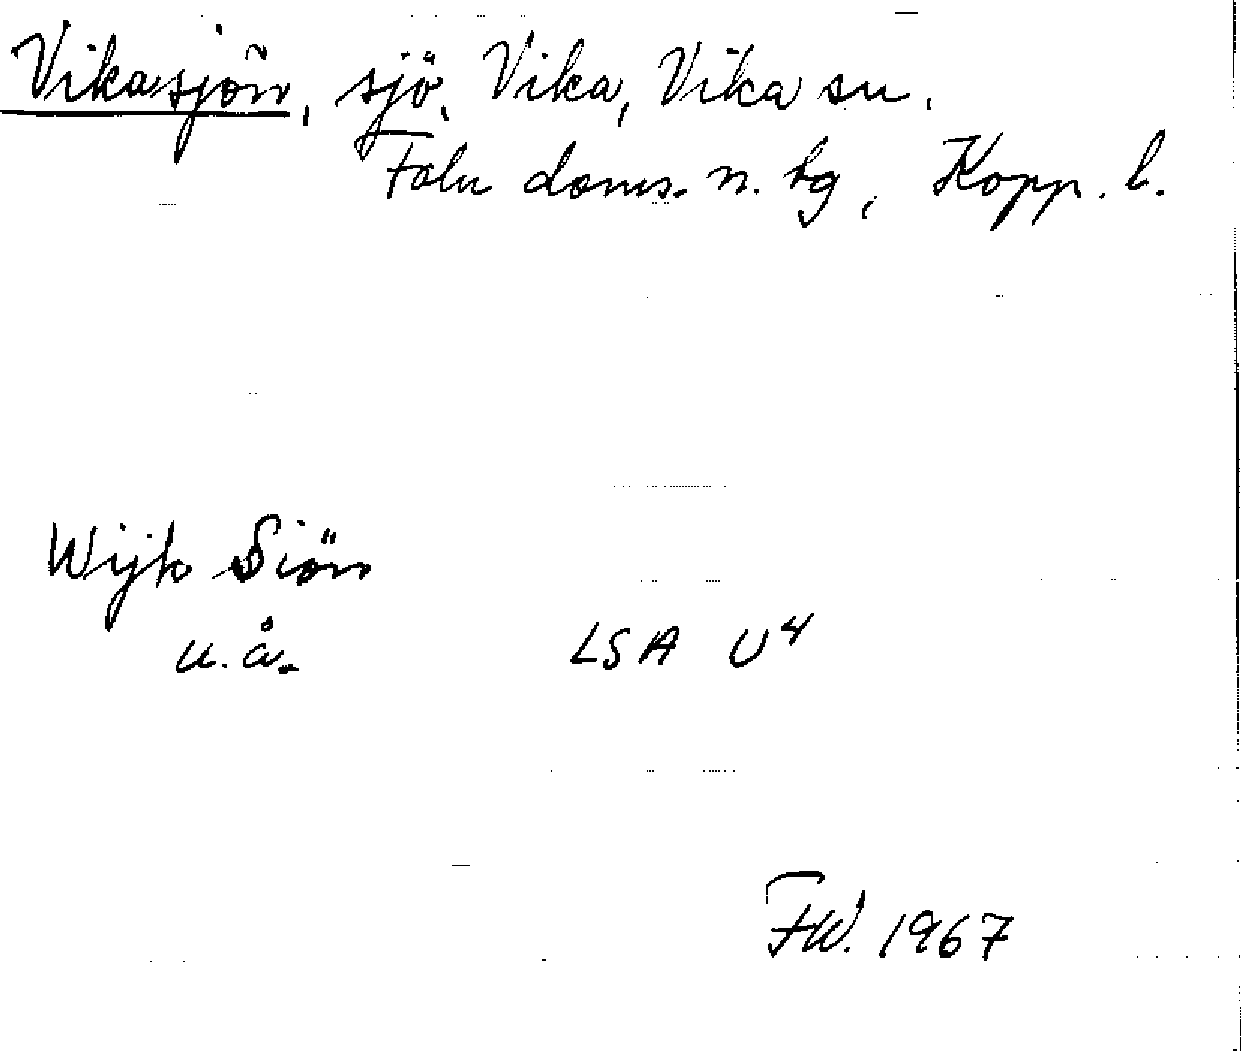 Vikasjön, sjö, Vika, Vika sn.
Falu doms. n. tg, Kopp. l.
Wijk Siön
u.å. LSA U4
FW. 1967